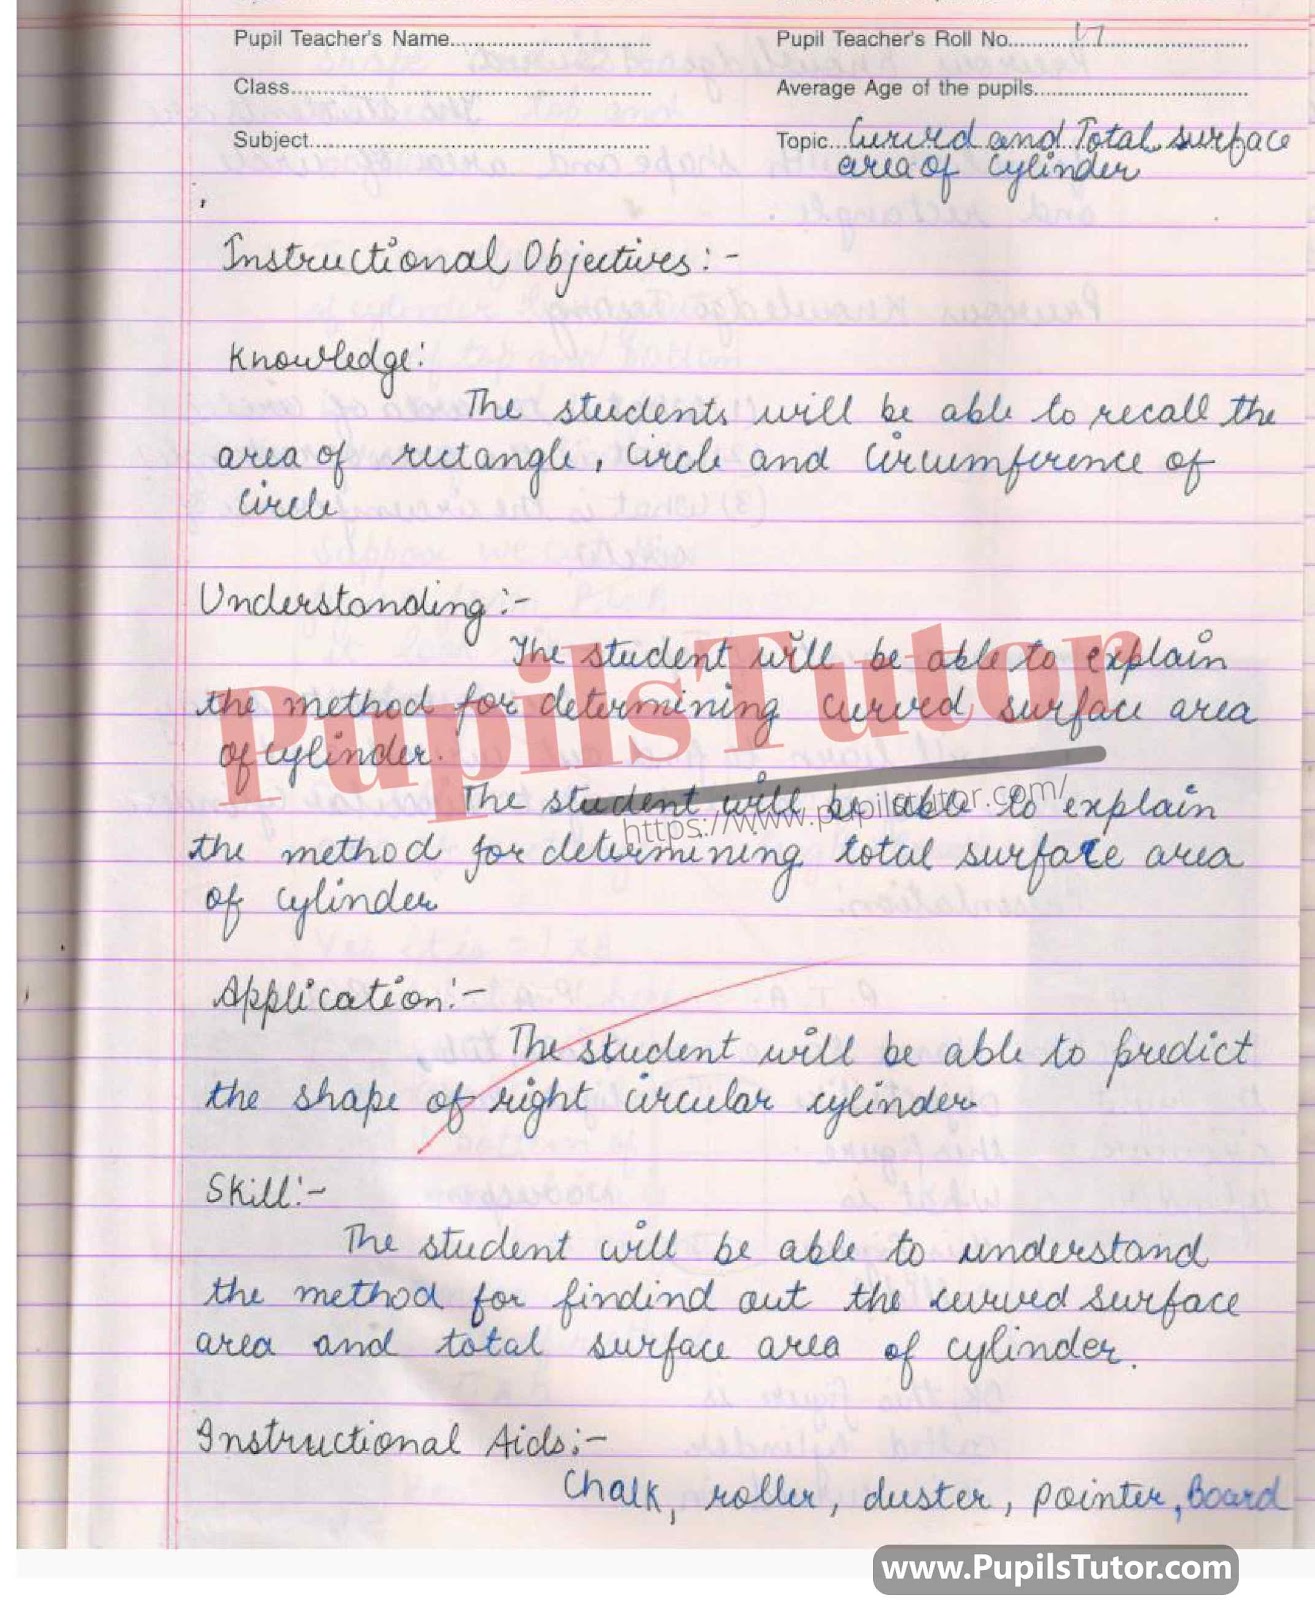 Pupil Teacher's Name............ Pupil Teacher's Roll No............ 17
Class............ Average Age of the pupils............
Subject............ Topic... Curvrd and Total surface
area of cylinder
Instructional Objectives:-
Knowledge:
The students will be able to recall the
area of rectangle, circle and circumference of
circle
Understanding:-
The student will be able to explain
the method for determining curved surface area
of cylinder.
The student will be able to explain
the method for determining total surface area
of cylinder
Application:-
The student will be able to predict
the shape of right circular cylinder
Skill:-
The student will be able to understand
the method for findind out the curved surface
area and total surface area of cylinder.
Instructional Aids:-
Chalk, roller, duster, pointer, Board
PupilsTutor
https://www.pupilstutor.com/
www.PupilsTutor.com